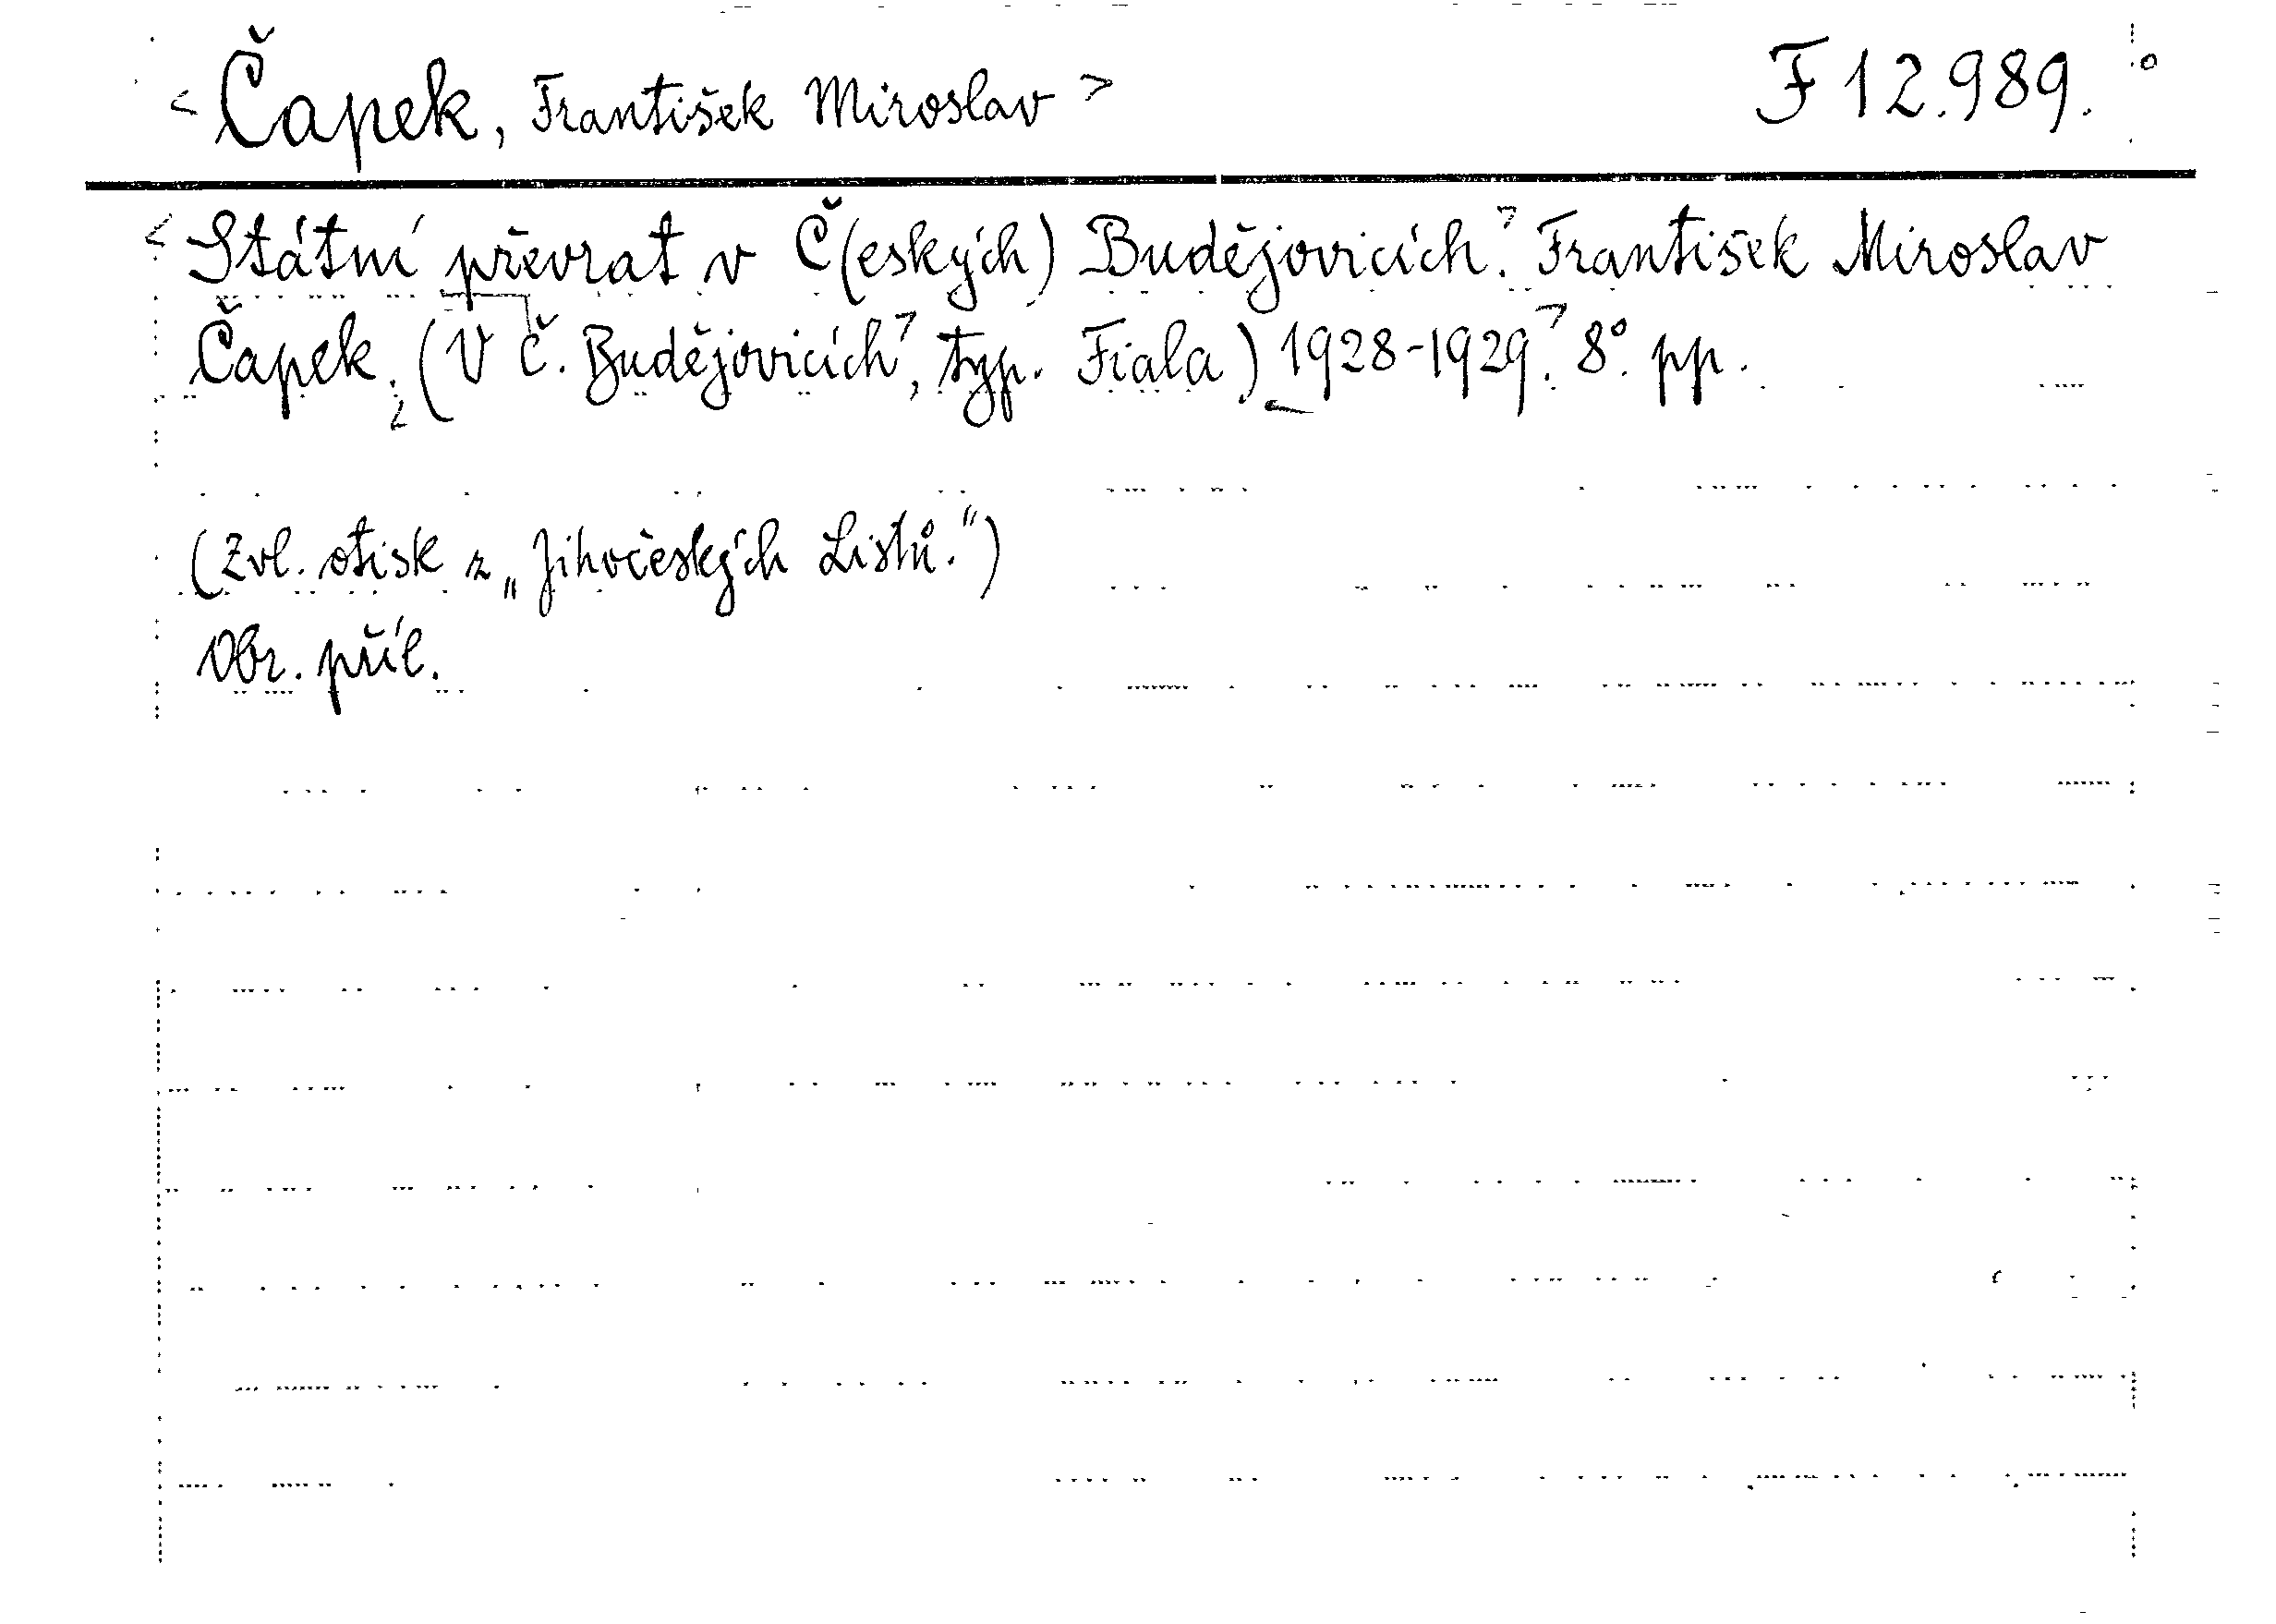 <Čapek, František Miroslav> F 12.989.
<Státní převrat v Č(eských) Budějovicích.> František Miroslav
Čapek. <(V Č. Budějovicích>, typ. Fiala) <1928-1929.> 8°. pp.
(Zvl. otisk z „Jihočeských Listů.")
Obr. příl.